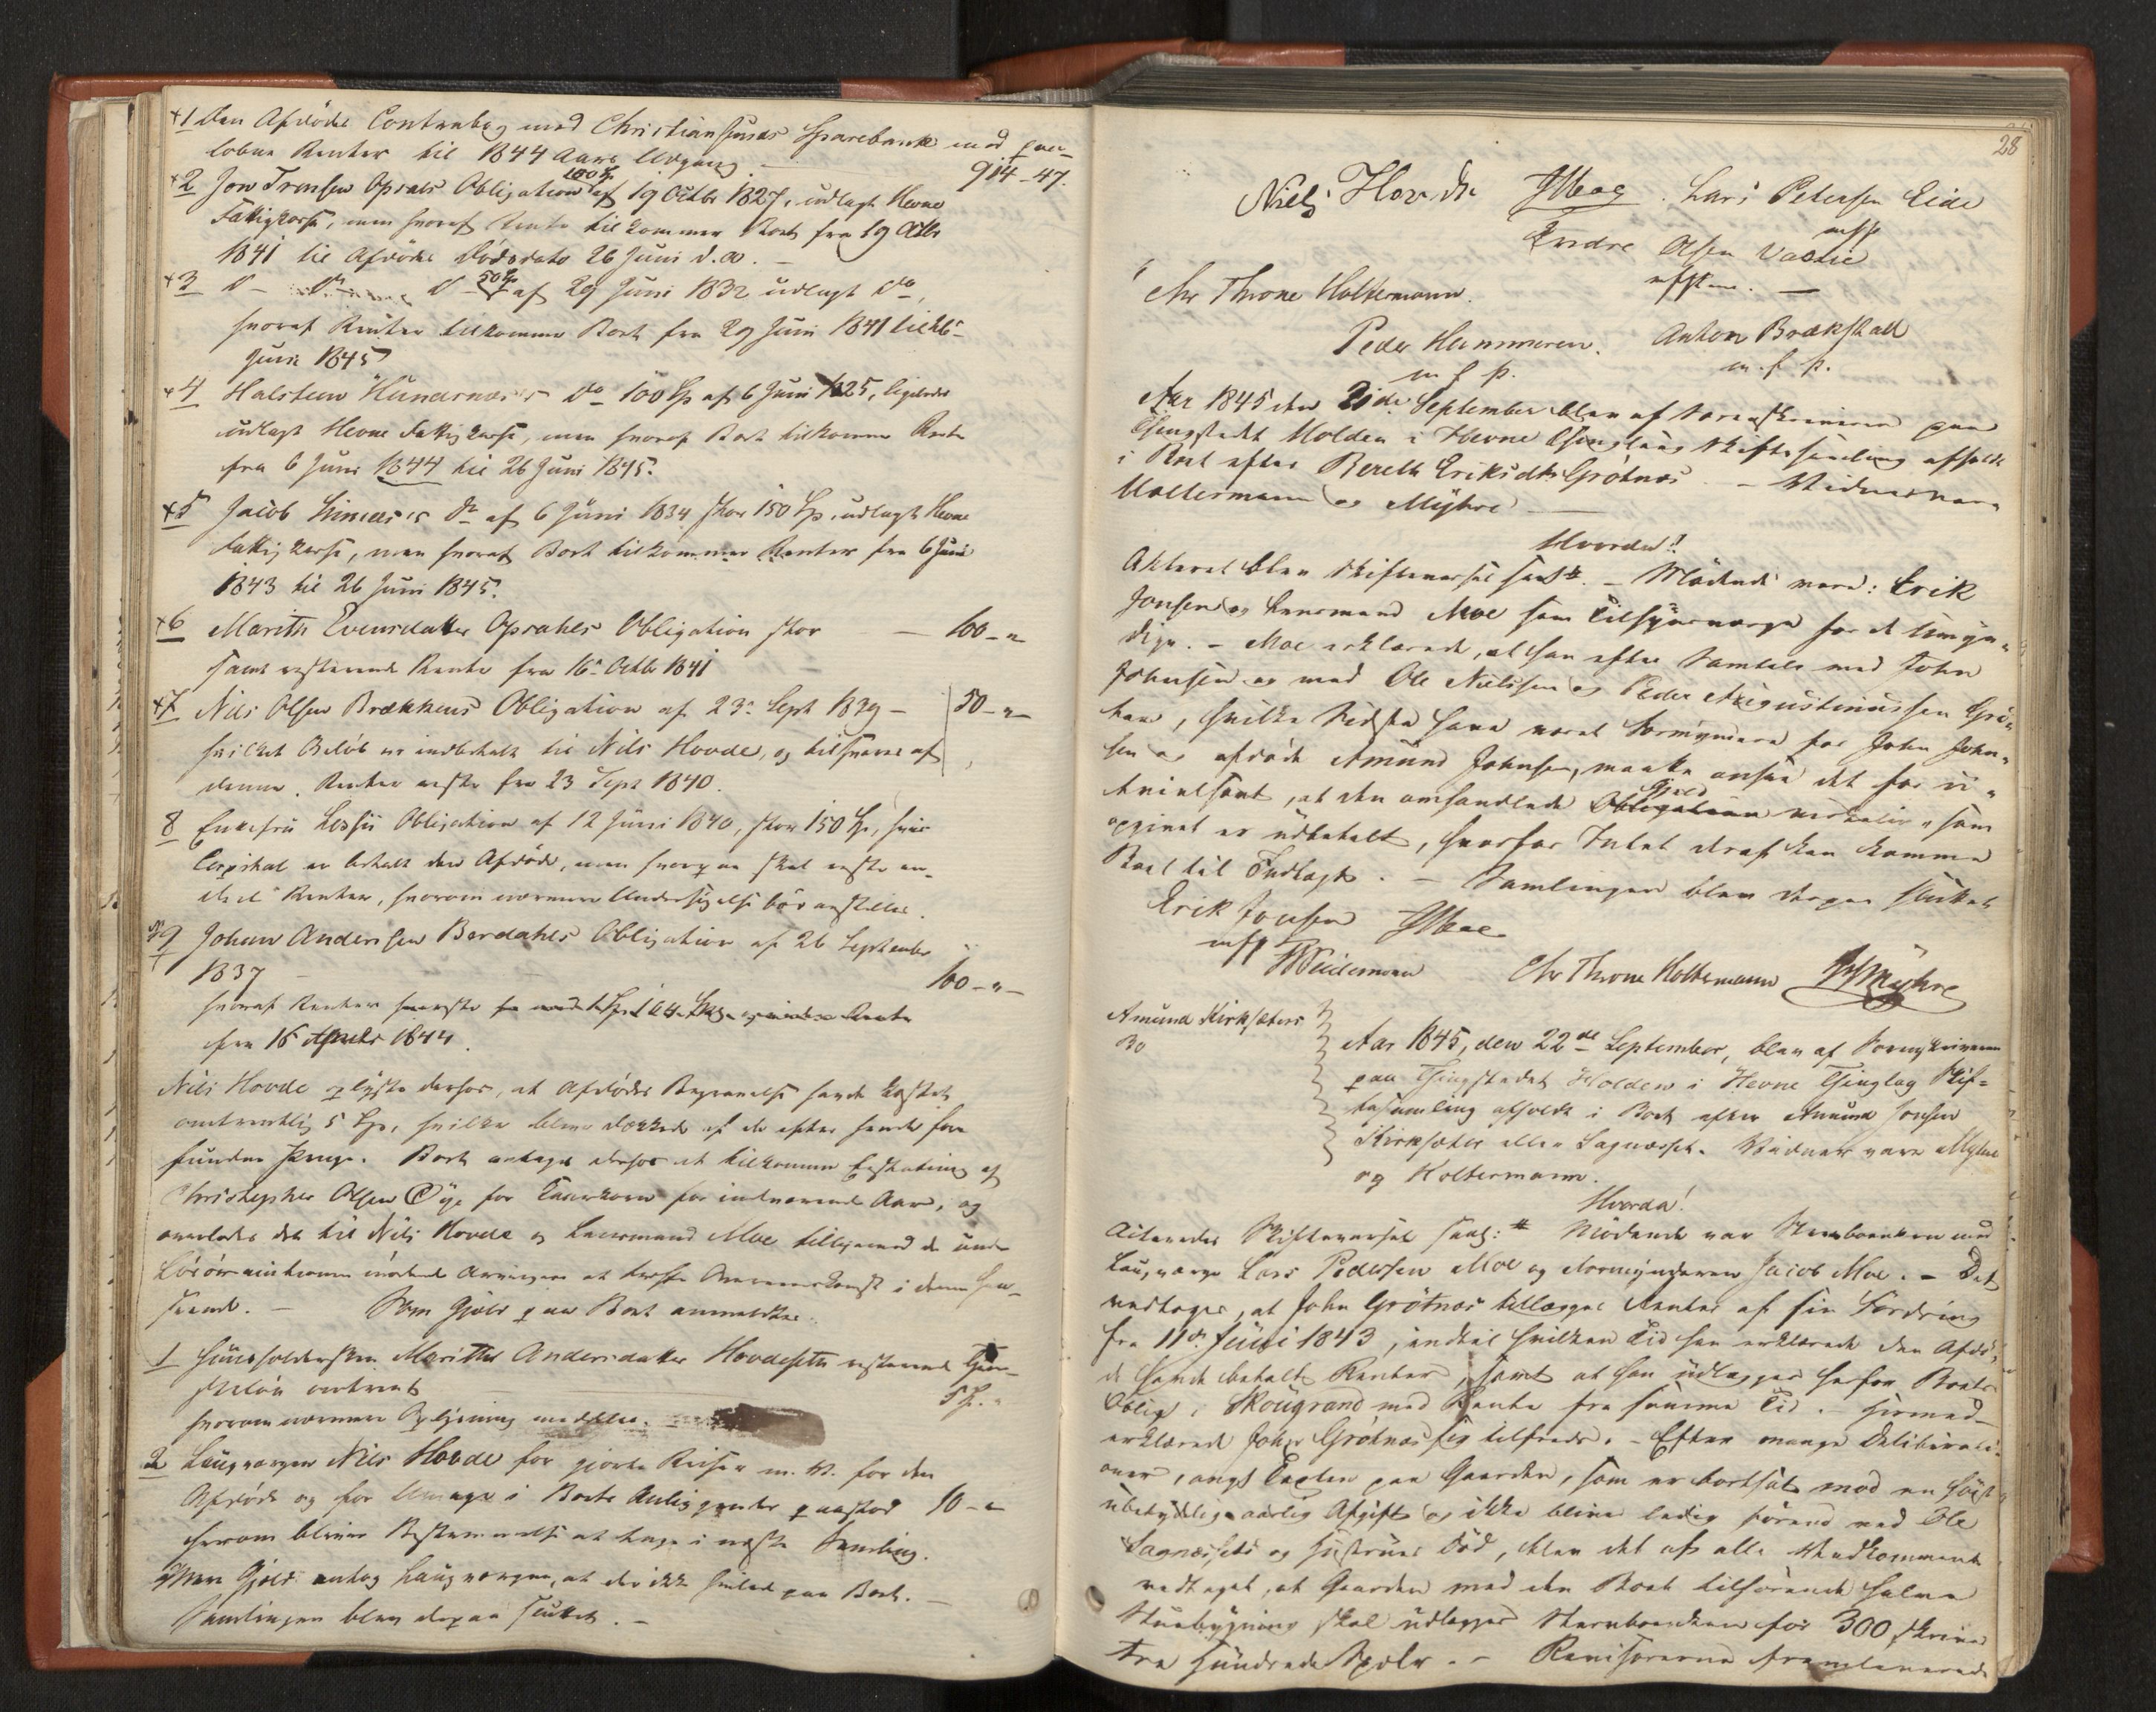 +1 Den Afdøde Contrabog med Christiansunds Sparebank med paa-
løbne Renter til 1844 Aars Udgang — 914-47.
+2 Jon Tronsen Opsals Obligation 100 Sp af 19 Octbr 1827, udlagt Hevne
Fattigkasse, men hvoraf Rente tilkommer Boet fra 19 Octbr
1841 til Afdødes Dødsdato 26 Juni d. A. —
+3 D- Do D- 50 Sp af 29 Juni 1832 udlagt Do,
hvoraf Renter tilkommer Boet fra 29 Juni 1841 til 26
Juni 1845
+4 Halsteen Hundernæs's Do 100 Sp af 6 Juni 1825, ligeledes
udlagt Hevne Fattigkasse, men hvoraf Boet tilkommer Rente
fra 6 Juni 1844 til 26 Juni 1845.
+5 Jacob Do af 6 Juni 1834 stor 150 Sp, udlagt Hevne
Fattigkasse, men hvoraf Boet tilkommer Renter fra 6 Juni
1843 til 26 Juni 1845.
+6 Marith Evensdatter Opsahls Obligation stor — 100 - "
samt resterende Rente fra 16 Octbr 1841
+7 Nils Olsen Brækkens Obligation af 23 Sept 1839 — 50 - "
hvilket Beløb er indbetalt til Nils Hovde, og tilsvares af
denne. Renter rester fra 23 Sept 1840.
8 Enkefru Lessii Obligation af 12 Juni 1840, stor 150 Sp, hvis
Capital er betalt den Afdøde, men hvorpaa skal reste en-
deel Renter, hvorom nærmere Undersøgelse bør anstilles.
+9 Johan Andersen Berdahls Obligation af 26 September
1837 — 100 - "
hvoraf Renter
fra 16 1844.
Nils Hovde oplyste derhos, at Afdødes Begravelse havde kostet
omtrentlig 5 Sp, hvilke blev dækkede af de efter hende fore-
fundne Penge. Boet antages derhos at tilkomme Erstatning af
Christopher Olsen Øye for for indeværende Aar, og
overlodes det til Nils Hovde og Lensmand Moe tilligemed de
Arvinger at træffe Overeenskomst i denne Hen-
seende. — Som Gjæld paa Boet anmeldtes:
1 Huusholdersken Marithe Andersdatter Hovdesæth resterende Tjene-
steløn omtrent 5 Sp. "
hvorom nærmere Oplysning meddeles.
2 Laugværgen Nils Hovde for gjorte Reiser m. V. for den
Afdøde og for Umage i Boets Anliggender paastod 10 - "
herom bliver Bestemmelse at tage i næste Samling.
Mere Gjæld antog Laugværgen, at der ikke hviled paa Boet. —
Samlingen blev derpaa sluttet. —
28
Niels Hovde JMoe Lars Petersen Eide
mfP
Endre Olsen Vaslie
mfPen. —
Chr Throne Holtermann.
Peder Hammeren. Anton Brækstad
m. f. P. m. f. P.
Aar 1845 den 21de September blev af Sorenskriveren paa
Thingstedet Holden i Hevne Thinglaug Skiftesamling afholdt
i Boet efter Bereth Eriksdtr Grøtnæs. — Vidner vare
Holtermann og Myhre —
Hvorda!
Akteret blev Skiftevarsel saal. #. — Mødende vare: Erik
Jonsen og Lensmand Moe som Tilsynsværge for de Umyn-
dige. — Moe erklærede, at han efter Samtale med John
Johnsen og med Ole Nielssen og Peder Augustinussen Grø-
ten, hvilke Sidste have været Formyndere for John John-
sen og afdøde Amund Johnsen, maatte ansee det for u-
tvivlsomt, at den omhandlede Obligation Gjæld virkelig, som
opgivet er udbetalt, hvorfor Intet deraf kan komme
Boet til Indtægt. — Samlingen blev derpaa sluttet
Erik Jonsen JMoe
mfP
Weidemann Chr Throne Holtermann Myhre
Amund Kirksæters
Bo
Aar 1845, den 22de September, blev af Sorenskriveren
paa Thingstedet Holden i Hevne Thinglag Skif-
tesamling afholdt i Boet efter Amund Jonsen
Kirksæter eller Sagnæsset. Vidner vare Myhre
og Holtermann.
Hvorda!
Acteredes Skiftevarsel saal: # Mødende var Stervboenken med
Laugværge Lars Pedersen Moe og Formynderen Jacob Moe. — Det
vedtoges, at John Grøtnæs tillægges Renter af sin Fordring
fra 11te Juni 1843, indtil hvilken Tid han erklærede den Afdø-
de havde betalt Renter, samt at han udlægges herfor Boets
Oblig. i Skougrand med Rente fra samme Tid. — Hermed
erklærede John Grøtnæs sig tilfreds. — Efter mange Deliberati-
oner, angt Taxten paa Gaarden, som er bortsat mod en høist
ubetydelig aarlig Afgift og ikke bliver ledig førend ved Ole
Sagnæssets og Hustrues Død, blev det af alle Vedkommende
vedtaget, at Gaarden med den Boet tilhørende halve
Stuebygning skal udlægges Stervboenken for 300 skriver
tre Hundrede Spdlr. — Revisorerne fremleverede